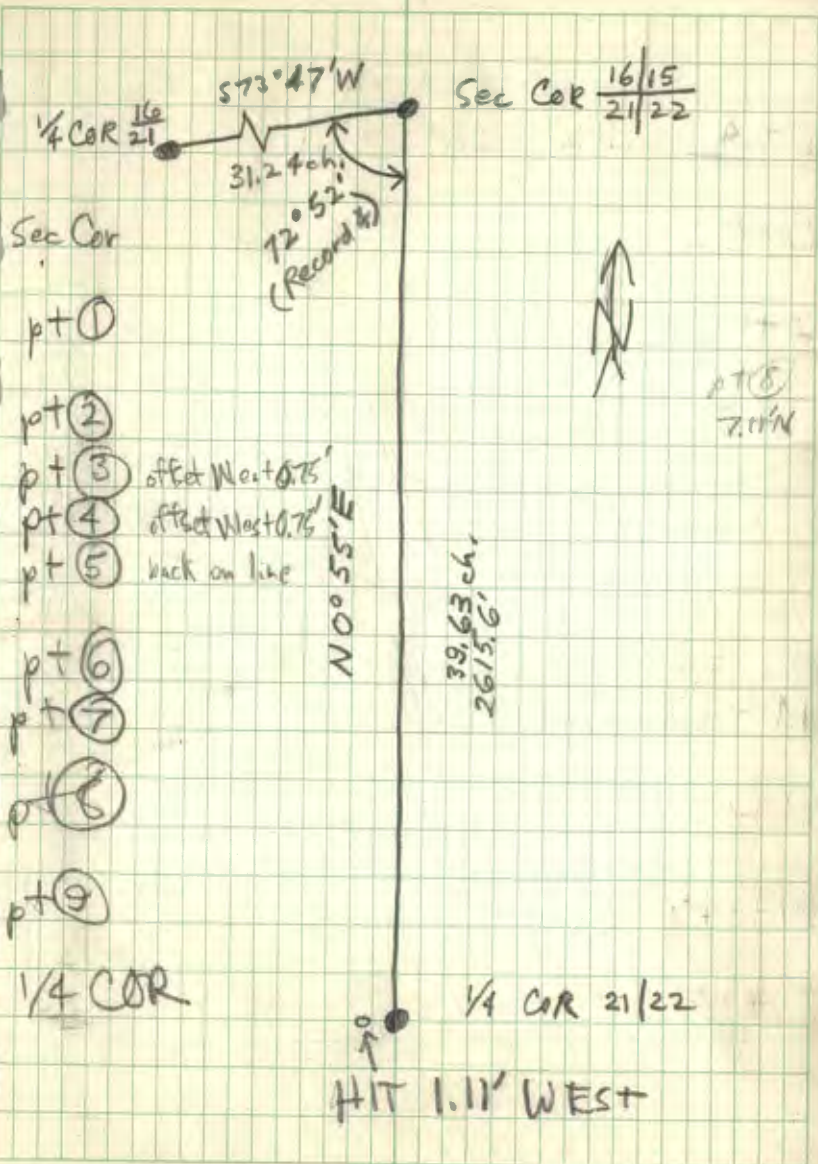 S73°47'W
Sec COR 16|15
21|22
1/4 COR 16
21
31.24 ch.
72°52'
(Record ∡)
Sec Cor
pt ①
pt ②
pt ③ offset West 0.75'
pt ④ offset West 0.75'
pt ⑤ back on line
pt ⑥
pt ⑦
pt ⑧
pt ⑨
1/4 COR
N
pt ⑧
7.11'N
N0°55'E
39.63 ch.
2615.6'
1/4 COR 21|22
HIT 1.11' WEST